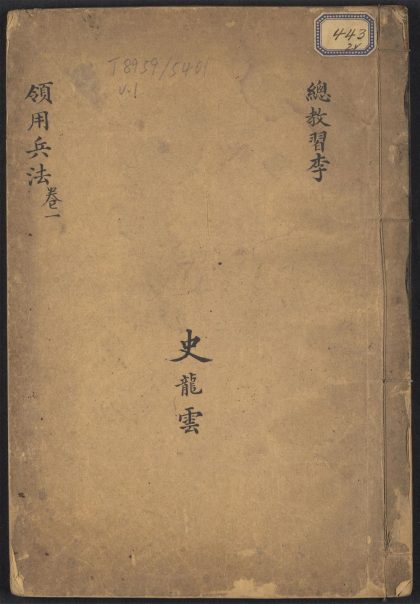 443
2v
T8959/5401
v.1
總教習李
史龍雲
領用兵法卷一